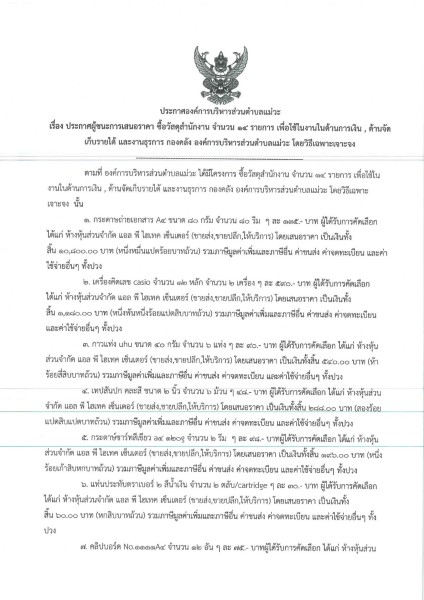 ประกาศองค์การบริหารส่วนตำบลแม่วะ
เรื่อง ประกาศผู้ชนะการเสนอราคา ซื้อวัสดุสำนักงาน จำนวน ๑๔ รายการ เพื่อใช้ในงานในด้านการเงิน , ด้านจัด
เก็บรายได้ และงานธุรการ กองคลัง องค์การบริหารส่วนตำบลแม่วะ โดยวิธีเฉพาะเจาะจง
ตามที่ องค์การบริหารส่วนตำบลแม่วะ ได้มีโครงการ ซื้อวัสดุสำนักงาน จำนวน ๑๔ รายการ เพื่อใช้ใน
งานในด้านการเงิน , ด้านจัดเก็บรายได้ และงานธุรการ กองคลัง องค์การบริหารส่วนตำบลแม่วะ โดยวิธีเฉพาะ
เจาะจง นั้น
๑. กระดาษถ่ายเอกสาร A๔ ขนาด ๘๐ กรัม จำนวน ๘๐ รีม ๆ ละ ๑๓๕.- บาท ผู้ได้รับการคัดเลือก
ได้แก่ ห้างหุ้นส่วนจำกัด แอล พี ไฮเทค เซ็นเตอร์ (ขายส่ง,ขายปลีก,ให้บริการ) โดยเสนอราคา เป็นเงินทั้ง
สิ้น ๑๐,๘๐๐.๐๐ บาท (หนึ่งหมื่นแปดร้อยบาทถ้วน) รวมภาษีมูลค่าเพิ่มและภาษีอื่น ค่าขนส่ง ค่าจดทะเบียน และค่า
ใช้จ่ายอื่นๆ ทั้งปวง
๒. เครื่องคิดเลข casio จำนวน ๑๒ หลัก จำนวน ๒ เครื่อง ๆ ละ ๕๙๐.- บาท ผู้ได้รับการคัดเลือก
ได้แก่ ห้างหุ้นส่วนจำกัด แอล พี ไฮเทค เซ็นเตอร์ (ขายส่ง,ขายปลีก,ให้บริการ) โดยเสนอราคา เป็นเงินทั้ง
สิ้น ๑,๑๘๐.๐๐ บาท (หนึ่งพันหนึ่งร้อยแปดสิบบาทถ้วน) รวมภาษีมูลค่าเพิ่มและภาษีอื่น ค่าขนส่ง ค่าจดทะเบียน
และค่าใช้จ่ายอื่นๆ ทั้งปวง
๓. กาวแท่ง uhu ขนาด ๔๐ กรัม จำนวน ๖ แท่ง ๆ ละ ๙๐.- บาท ผู้ได้รับการคัดเลือก ได้แก่ ห้างหุ้น
ส่วนจำกัด แอล พี ไฮเทค เซ็นเตอร์ (ขายส่ง,ขายปลีก,ให้บริการ) โดยเสนอราคา เป็นเงินทั้งสิ้น ๕๔๐.๐๐ บาท (ห้า
ร้อยสี่สิบบาทถ้วน) รวมภาษีมูลค่าเพิ่มและภาษีอื่น ค่าขนส่ง ค่าจดทะเบียน และค่าใช้จ่ายอื่นๆ ทั้งปวง
๔. เทปสันปก คละสี ขนาด ๒ นิ้ว จำนวน ๖ ม้วน ๆ ๔๘.- บาท ผู้ได้รับการคัดเลือก ได้แก่ ห้างหุ้นส่วน
จำกัด แอล พี ไฮเทค เซ็นเตอร์ (ขายส่ง,ขายปลีก,ให้บริการ) โดยเสนอราคา เป็นเงินทั้งสิ้น ๒๘๘.๐๐ บาท (สองร้อย
แปดสิบแปดบาทถ้วน) รวมภาษีมูลค่าเพิ่มและภาษีอื่น ค่าขนส่ง ค่าจดทะเบียน และค่าใช้จ่ายอื่นๆ ทั้งปวง
๕. กระดาษชาร์ทสีเขียว a๔ ๑๒๐g จำนวน ๒ รีม ๆ ละ ๙๘.- บาทผู้ได้รับการคัดเลือก ได้แก่ ห้างหุ้น
ส่วนจำกัด แอล พี ไฮเทค เซ็นเตอร์ (ขายส่ง,ขายปลีก,ให้บริการ) โดยเสนอราคา เป็นเงินทั้งสิ้น ๑๙๖.๐๐ บาท (หนึ่ง
ร้อยเก้าสิบหกบาทถ้วน) รวมภาษีมูลค่าเพิ่มและภาษีอื่น ค่าขนส่ง ค่าจดทะเบียน และค่าใช้จ่ายอื่นๆ ทั้งปวง
๖. แท่นประทับตราเบอร์ ๒ สีน้ำเงิน จำนวน ๒ ตลับ/cartridge ๆ ละ ๓๐.- บาท ผู้ได้รับการคัดเลือก
ได้แก่ ห้างหุ้นส่วนจำกัด แอล พี ไฮเทค เซ็นเตอร์ (ขายส่ง,ขายปลีก,ให้บริการ) โดยเสนอราคา เป็นเงินทั้ง
สิ้น ๖๐.๐๐ บาท (หกสิบบาทถ้วน) รวมภาษีมูลค่าเพิ่มและภาษีอื่น ค่าขนส่ง ค่าจดทะเบียน และค่าใช้จ่ายอื่นๆ ทั้ง
ปวง
๗. คลิปบอร์ด No.๑๑๑๑A๔ จำนวน ๑๒ อัน ๆ ละ ๗๕.- บาทผู้ได้รับการคัดเลือก ได้แก่ ห้างหุ้นส่วน